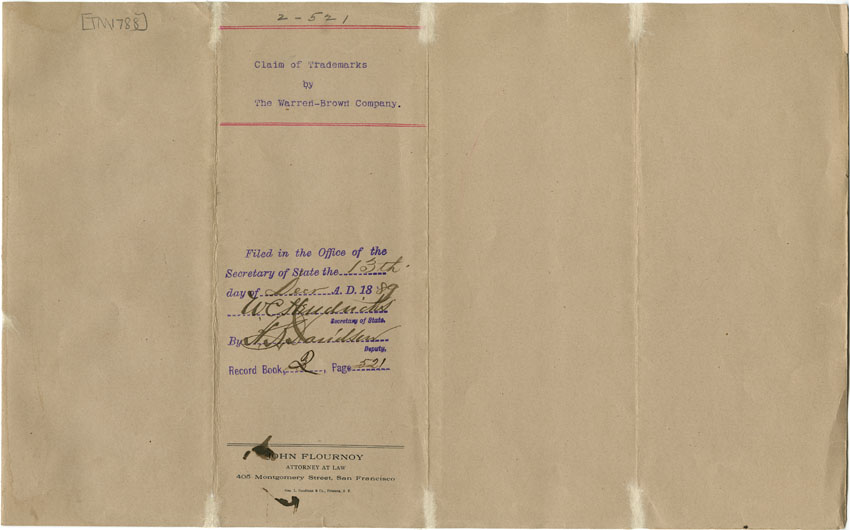 [TM 788]
2-521
Claim of Trademarks
by
The Warren-Brown Company.
Filed in the Office of the
Secretary of State the 13th
day of Dec A. D. 1889
W C Hendricks
Secretary of State.
By
Deputy.
Record Book, 2, Page 521
JOHN FLOURNOY
ATTORNEY AT LAW
405 Montgomery Street, San Francisco